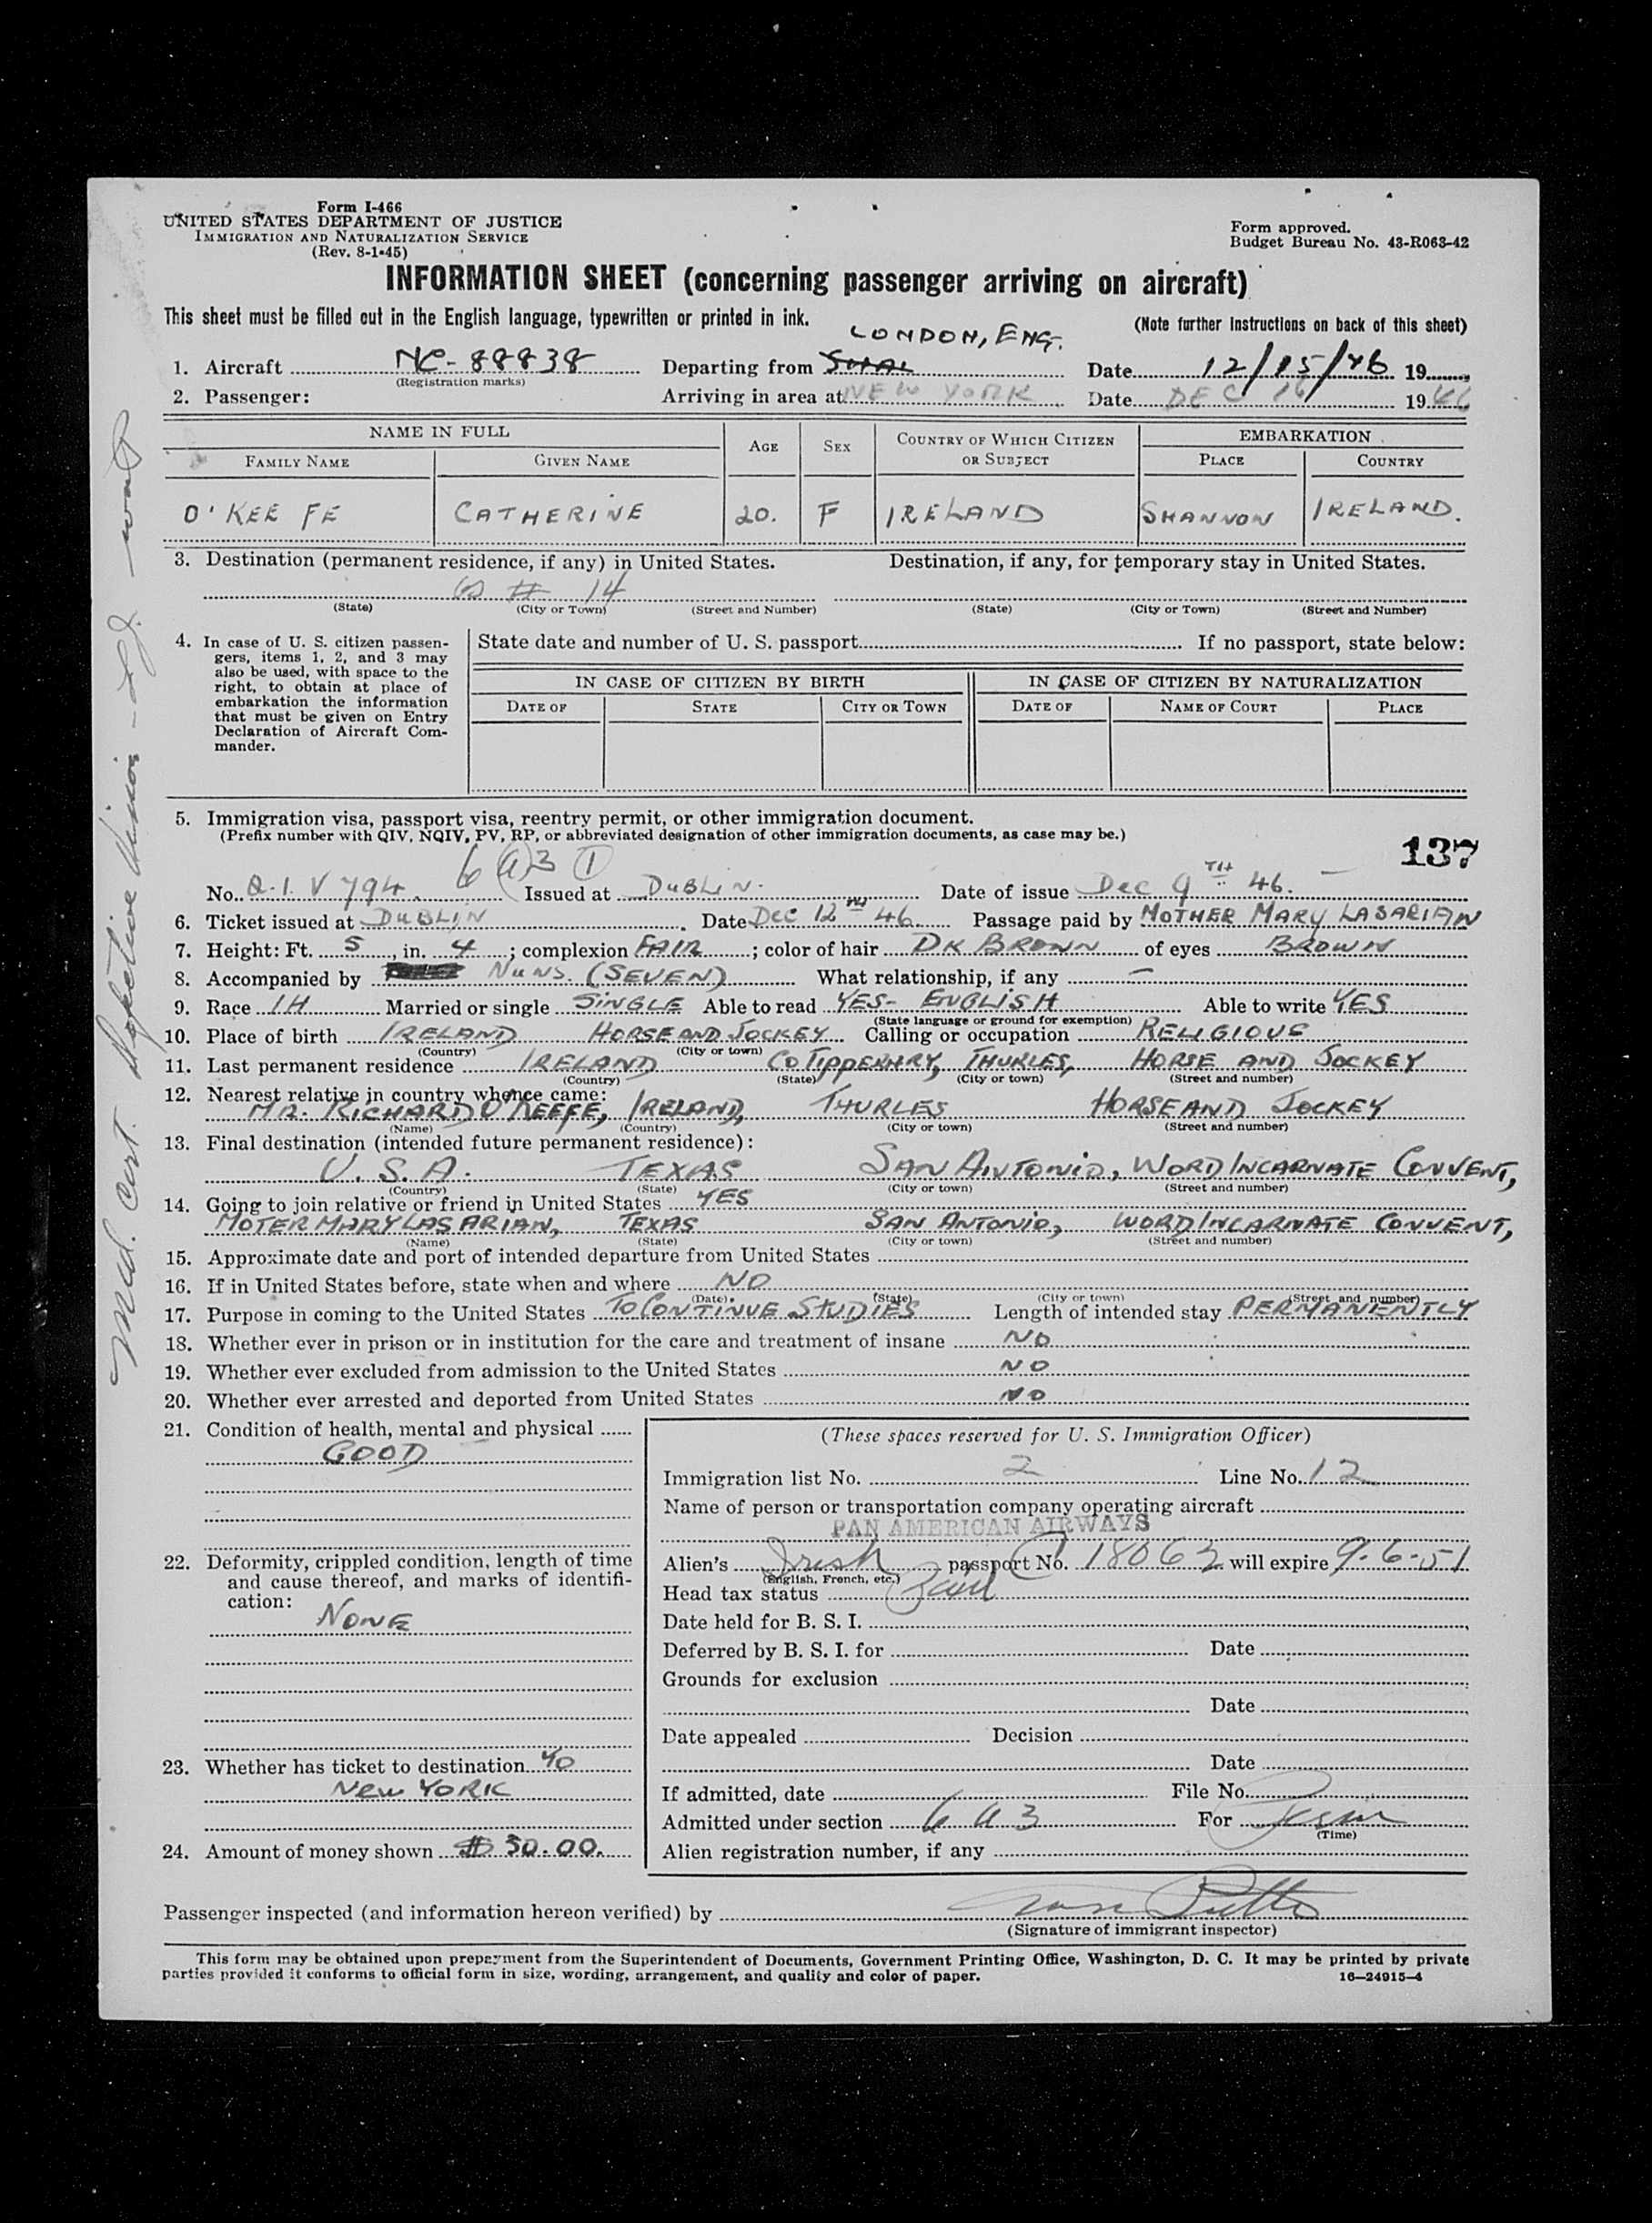 Form I-466
UNITED STATES DEPARTMENT OF JUSTICE
IMMIGRATION AND NATURALIZATION SERVICE
(Rev. 8-1-45)
Form approved.
Budget Bureau No. 43-R063-42
INFORMATION SHEET (concerning passenger arriving on aircraft)
This sheet must be filled out in the English language, typewritten or printed in ink.
(Note further instructions on back of this sheet)
LONDON, ENG.
1. Aircraft NC-88838 Departing from Date 12/15/46 19
(Registration marks)
2. Passenger: Arriving in area at NEW YORK Date DEC 16 1946
NAME IN FULL AGE SEX COUNTRY OF WHICH CITIZEN OR SUBJECT EMBARKATION
FAMILY NAME GIVEN NAME PLACE COUNTRY
O'KEE FE CATHERINE 20. F IRELAND SHANNON IRELAND.
3. Destination (permanent residence, if any) in United States. Destination, if any, for temporary stay in United States.
# 14
(State) (City or Town) (Street and Number) (State) (City or Town) (Street and Number)
4. In case of U. S. citizen passen-
gers, items 1, 2, and 3 may
also be used, with space to the
right, to obtain at place of
embarkation the information
that must be given on Entry
Declaration of Aircraft Com-
mander.
State date and number of U. S. passport If no passport, state below:
IN CASE OF CITIZEN BY BIRTH IN CASE OF CITIZEN BY NATURALIZATION
DATE OF STATE CITY OR TOWN DATE OF NAME OF COURT PLACE
5. Immigration visa, passport visa, reentry permit, or other immigration document.
(Prefix number with QIV, NQIV, PV, RP, or abbreviated designation of other immigration documents, as case may be.)
137
6 a 3 1
No. Q.I.V 794. Issued at DUBLIN. Date of issue Dec 9TH 46.
6. Ticket issued at DUBLIN Date DEC 12TH 46 Passage paid by MOTHER MARY LASARIAN
7. Height: Ft. 5, in. 4; complexion FAIR; color of hair DK BROWN of eyes BROWN
8. Accompanied by NUNS. (SEVEN) What relationship, if any —
9. Race IH Married or single SINGLE Able to read YES- ENGLISH Able to write YES
(State language or ground for exemption)
10. Place of birth IRELAND HORSE AND JOCKEY Calling or occupation RELIGIOUS
(Country) (City or town)
11. Last permanent residence IRELAND CO TIPPERARY, THURLES, HORSE AND JOCKEY
(Country) (State) (City or town) (Street and number)
12. Nearest relative in country whence came:
MR. RICHARD O'KEEFE, IRELAND, THURLES HORSE AND JOCKEY
(Name) (Country) (City or town) (Street and number)
13. Final destination (intended future permanent residence):
U. S. A. TEXAS SAN ANTONIO, WORD INCARNATE CONVENT,
(Country) (State) (City or town) (Street and number)
14. Going to join relative or friend in United States YES
MOTER MARY LASARIAN, TEXAS SAN ANTONIO, WORD INCARNATE CONVENT,
(Name) (State) (City or town) (Street and number)
15. Approximate date and port of intended departure from United States
16. If in United States before, state when and where NO
(Date) (State) (City or town) (Street and number)
17. Purpose in coming to the United States TO CONTINUE STUDIES Length of intended stay PERMANENTLY
18. Whether ever in prison or in institution for the care and treatment of insane NO
19. Whether ever excluded from admission to the United States NO
20. Whether ever arrested and deported from United States NO
21. Condition of health, mental and physical
GOOD
22. Deformity, crippled condition, length of time
and cause thereof, and marks of identifi-
cation:
NONE
23. Whether has ticket to destination TO
NEW YORK
24. Amount of money shown $ 50.00.
(These spaces reserved for U. S. Immigration Officer)
Immigration list No. 2 Line No. 12
Name of person or transportation company operating aircraft
PAN AMERICAN AIRWAYS
Alien's Irish passport No. 18063 will expire 9-6-51
(English, French, etc.)
Head tax status Paid
Date held for B. S. I.
Deferred by B. S. I. for Date
Grounds for exclusion
Date
Date appealed Decision
Date
If admitted, date File No.
Admitted under section 6 a 3 For Perm
(Time)
Alien registration number, if any
Passenger inspected (and information hereon verified) by
(Signature of immigrant inspector)
This form may be obtained upon prepayment from the Superintendent of Documents, Government Printing Office, Washington, D. C. It may be printed by private
parties provided it conforms to official form in size, wording, arrangement, and quality and color of paper. 16—24915-4
Med. Cert. Defective Vision